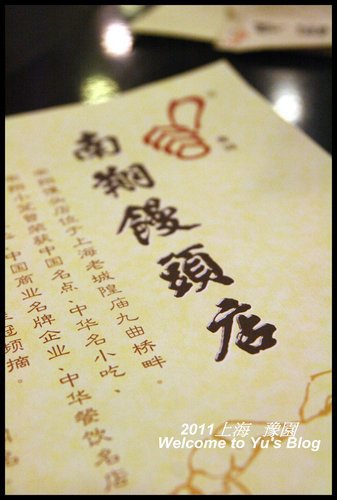 南翔饅頭店
南翔馒头店位于上海老城隍庙九曲桥畔。
南翔小笼曾荣获中国名点、中华名小吃、
中国商业名牌企业、中华餐饮名店
冠顶摘。
2011上海 豫園
Welcome to Yu's Blog